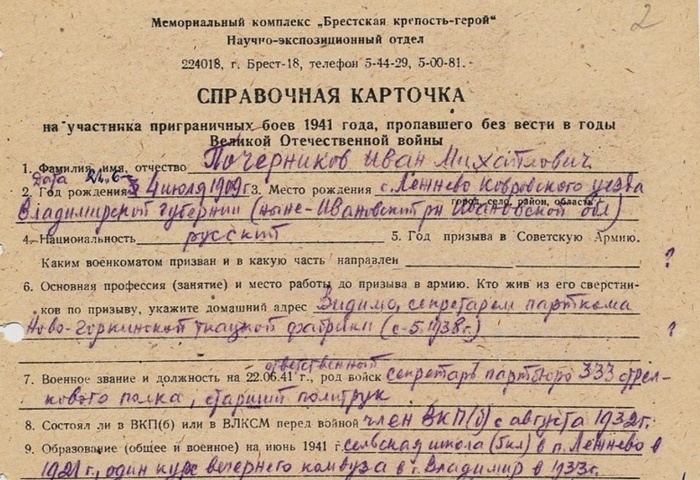 2
Мемориальный комплекс „Брестская крепость-герой“
Научно-экспозиционный отдел
224018, г. Брест-18, телефон 5-44-29, 5-00-81.
СПРАВОЧНАЯ КАРТОЧКА
на участника приграничных боев 1941 года, пропавшего без вести в годы
Великой Отечественной войны
1. Фамилия, имя, отчество Почерников Иван Михайлович
Дата 24.6
2. Год рождения 4 июля 1909 г 3. Место рождения с. Лежнево Ковровского уезда
город, село, район, область
Владимирской губернии (ныне Ивановский рн Ивановской обл)
4. Национальность русский 5. Год призыва в Советскую Армию.
Каким военкоматом призван и в какую часть направлен ?
6. Основная профессия (занятие) и место работы до призыва в армию. Кто жив из его сверстни-
ков по призыву, укажите домашний адрес Видимо, секретарем парткома
Ново-Горкинской ткацкой фабрики (с 5.1938г.) ?
ответственный
7. Военное звание и должность на 22.06.41 г., род войск секретарь партбюро 333 стрел-
кового полка, старший политрук
8. Состоял ли в ВКП(б) или в ВЛКСМ перед войной член ВКП(б) с августа 1932г.
9. Образование (общее и военное) на июнь 1941 г. сельская школа (5кл) в п. Лежнево в
1921 г., один курс вечернего комвуза в г. Владимир в 1933г.